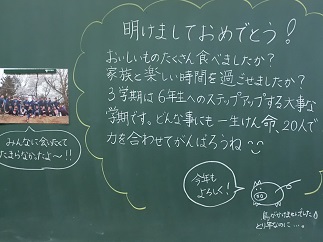 明けましておめでとう!
おいしいものたくさん食べましたか?
家族と楽しい時間を過ごせましたか?
3学期は6年生へのステップアップする大事な
学期です。どんな事にも一生けん命、20人で
力を合わせてがんばろうね
みんなに会いたくて
たまらなかったよ〜!!
今年も
よろしく!
とり年なのに…。